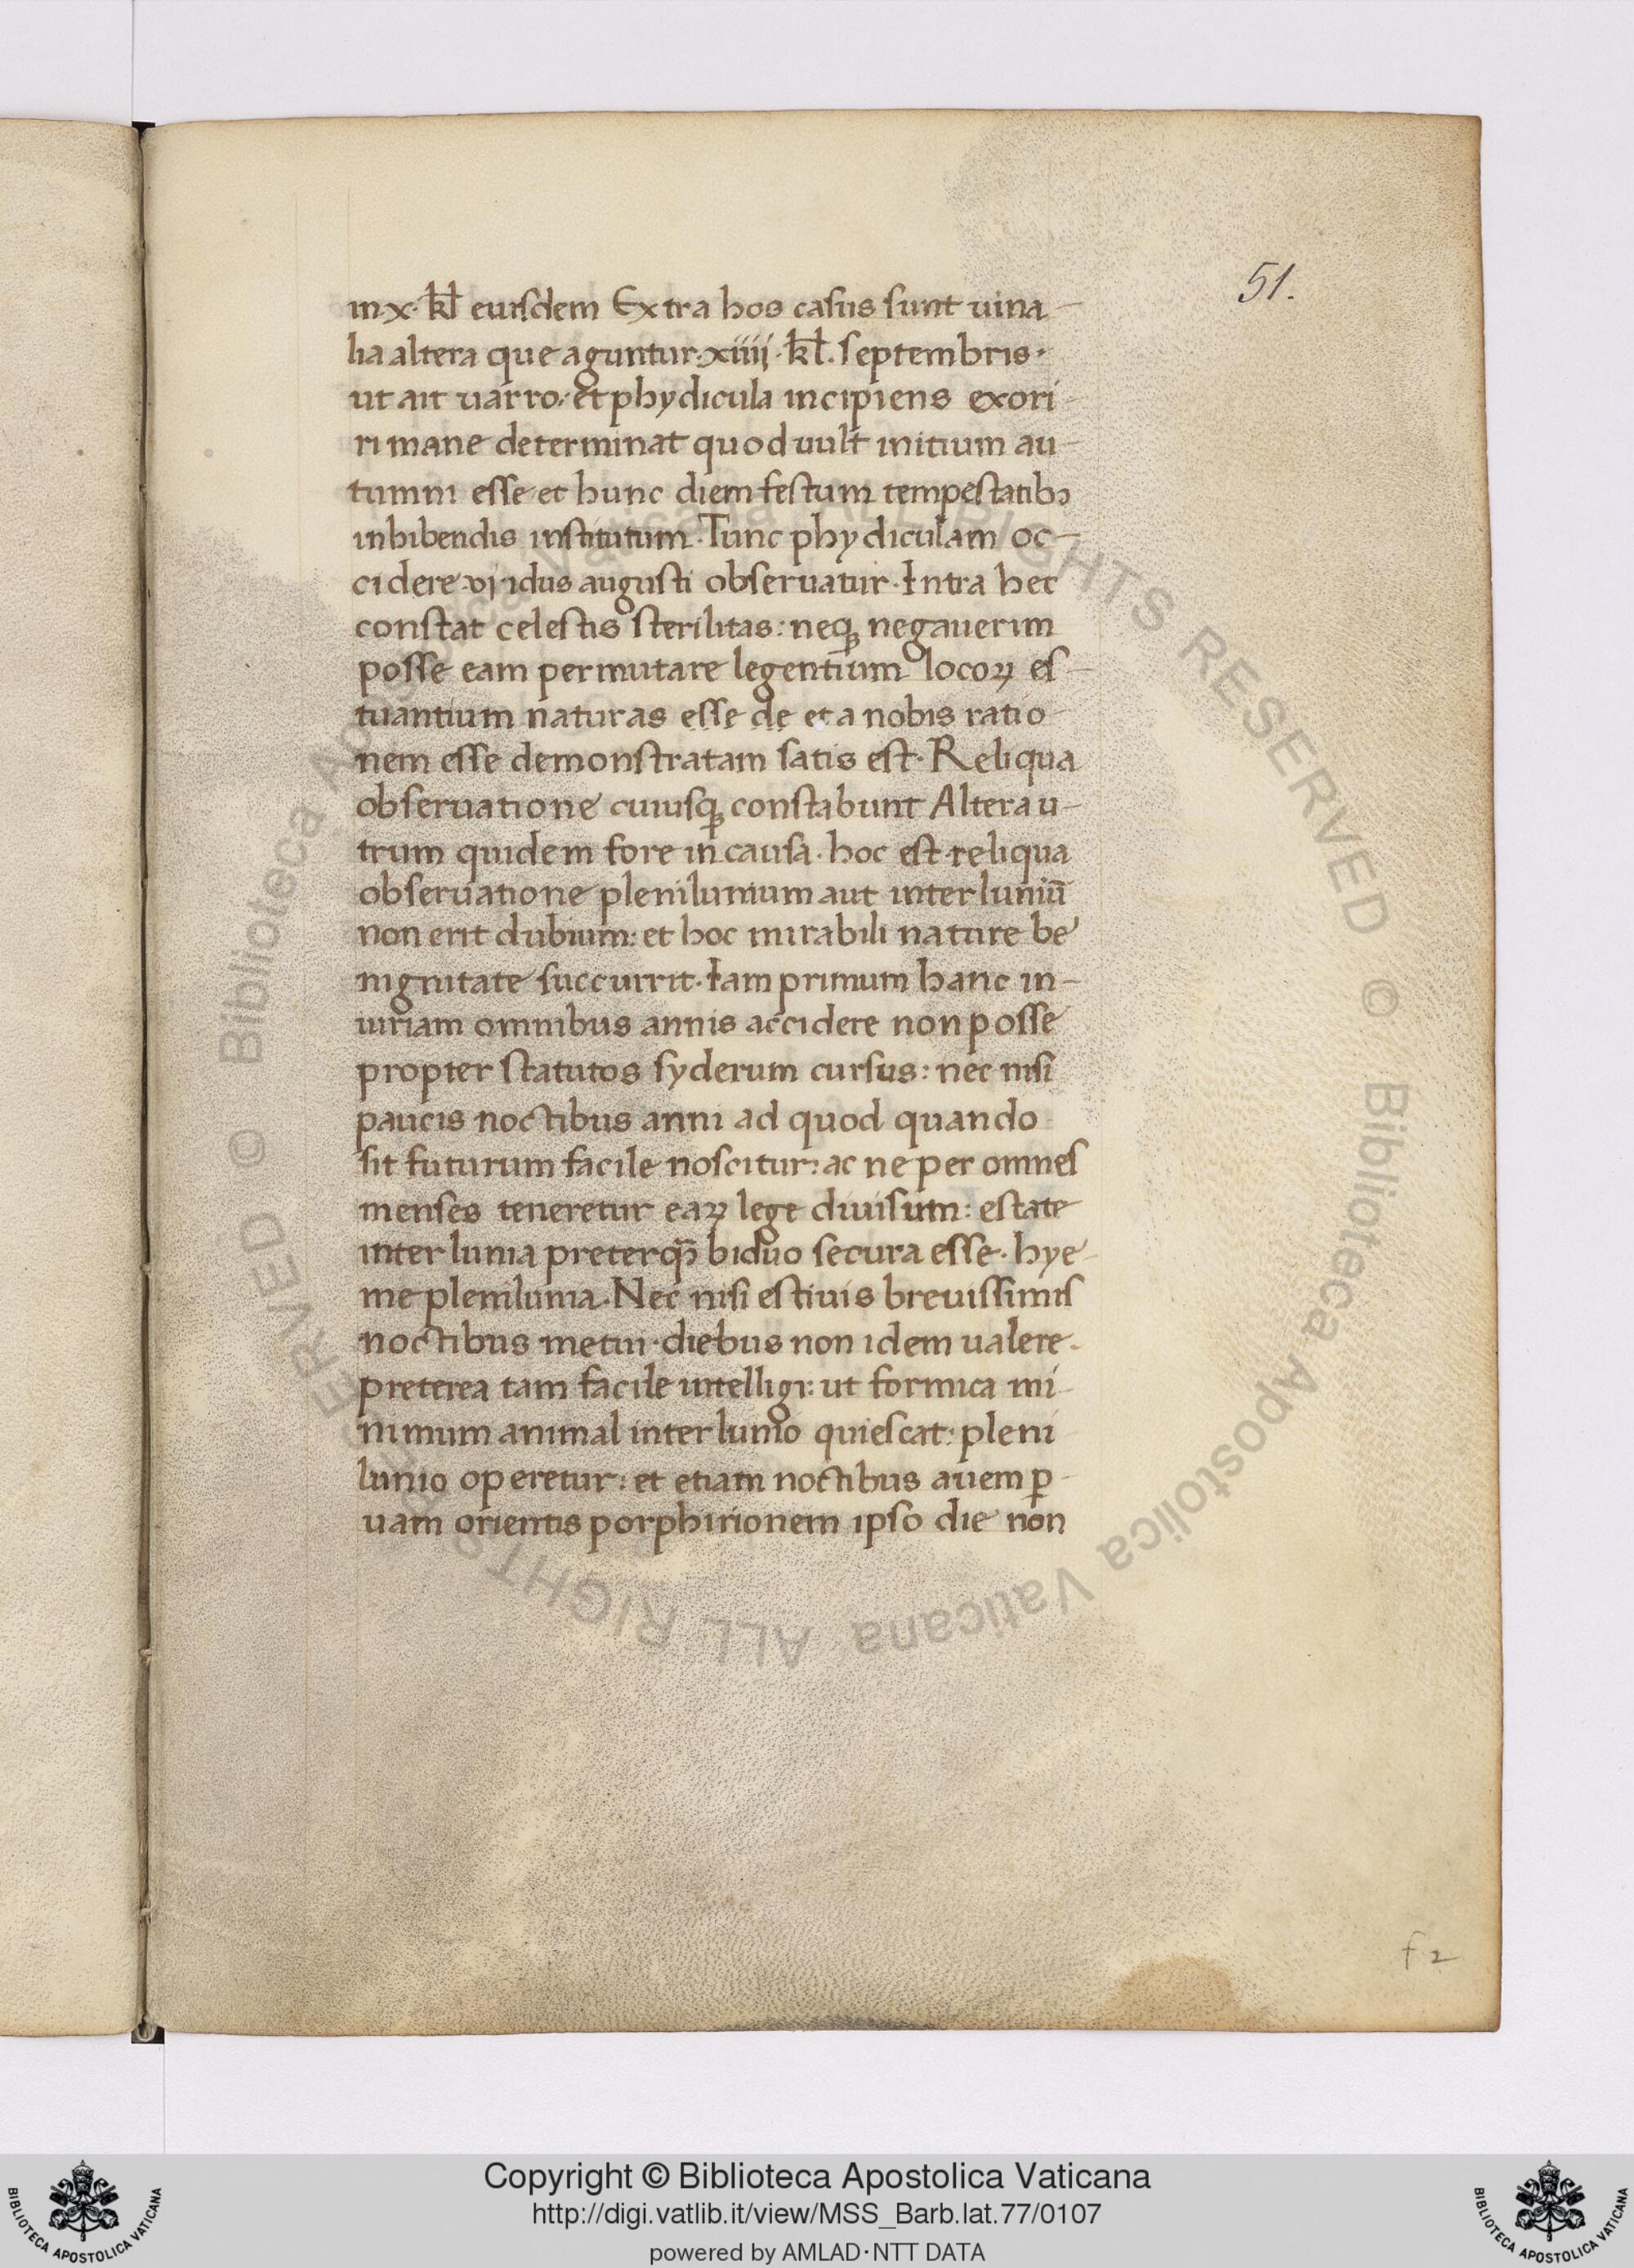 51.
in x · kl̄ eiusdem Extra hos casus sunt uina-
lia altera que aguntur · xiiij · kl̄. septembris ·
ut ait uarro · et phydicula incipiens exori-
ri mane determinat quod uult initium au-
tumni esse et hunc diem festum tempestatibꝫ
inbibendis institutum · Tunc phydiculam oc-
cidere · vj · idus augusti obseruatur · Intra hec
constat celestis sterilitas : neqꝫ negauerim
posse eam permutare legentium locoꝝ es-
tuantium naturas esse de et a nobis ratio-
nem esse demonstratam satis est · Reliqua
obseruatione cuiusqꝫ constabunt Alterau-
trum quidem fore in causa · hoc est reliqua
obseruatione plenilunium aut interluniū
non erit dubium : et hoc mirabili nature be
nignitate succurrit · Iam primum hanc in-
iuriam omnibus annis accidere non posse
propter statutos syderum cursus : nec nisi
paucis noctibus anni ad quod quando
sit futurum facile noscitur : ac ne per omnes
menses teneretur eaꝝ lege diuisum : estate
inter lunia preterqꝫ̄ biduo secura esse · hye-
me plenilunia · Nec nisi estiuis breuissimis
noctibus metui · diebus non idem ualere ·
preterea tam facile intelligi : ut formica mi-
nimum animal interlunio quiescat : pleni
lunio operetur : et etiam noctibus auem ꝑ-
uam orientis porphirionem ipso die non
f 2
© Biblioteca Apostolica Vaticana ALL RIGHTS RESERVED © Biblioteca Apostolica Vaticana ALL RIGHTS RESERVED
BIBLIOTECA APOSTOLICA VATICANA
Copyright © Biblioteca Apostolica Vaticana
http://digi.vatlib.it/view/MSS_Barb.lat.77/0107
powered by AMLAD·NTT DATA
BIBLIOTECA APOSTOLICA VATICANA